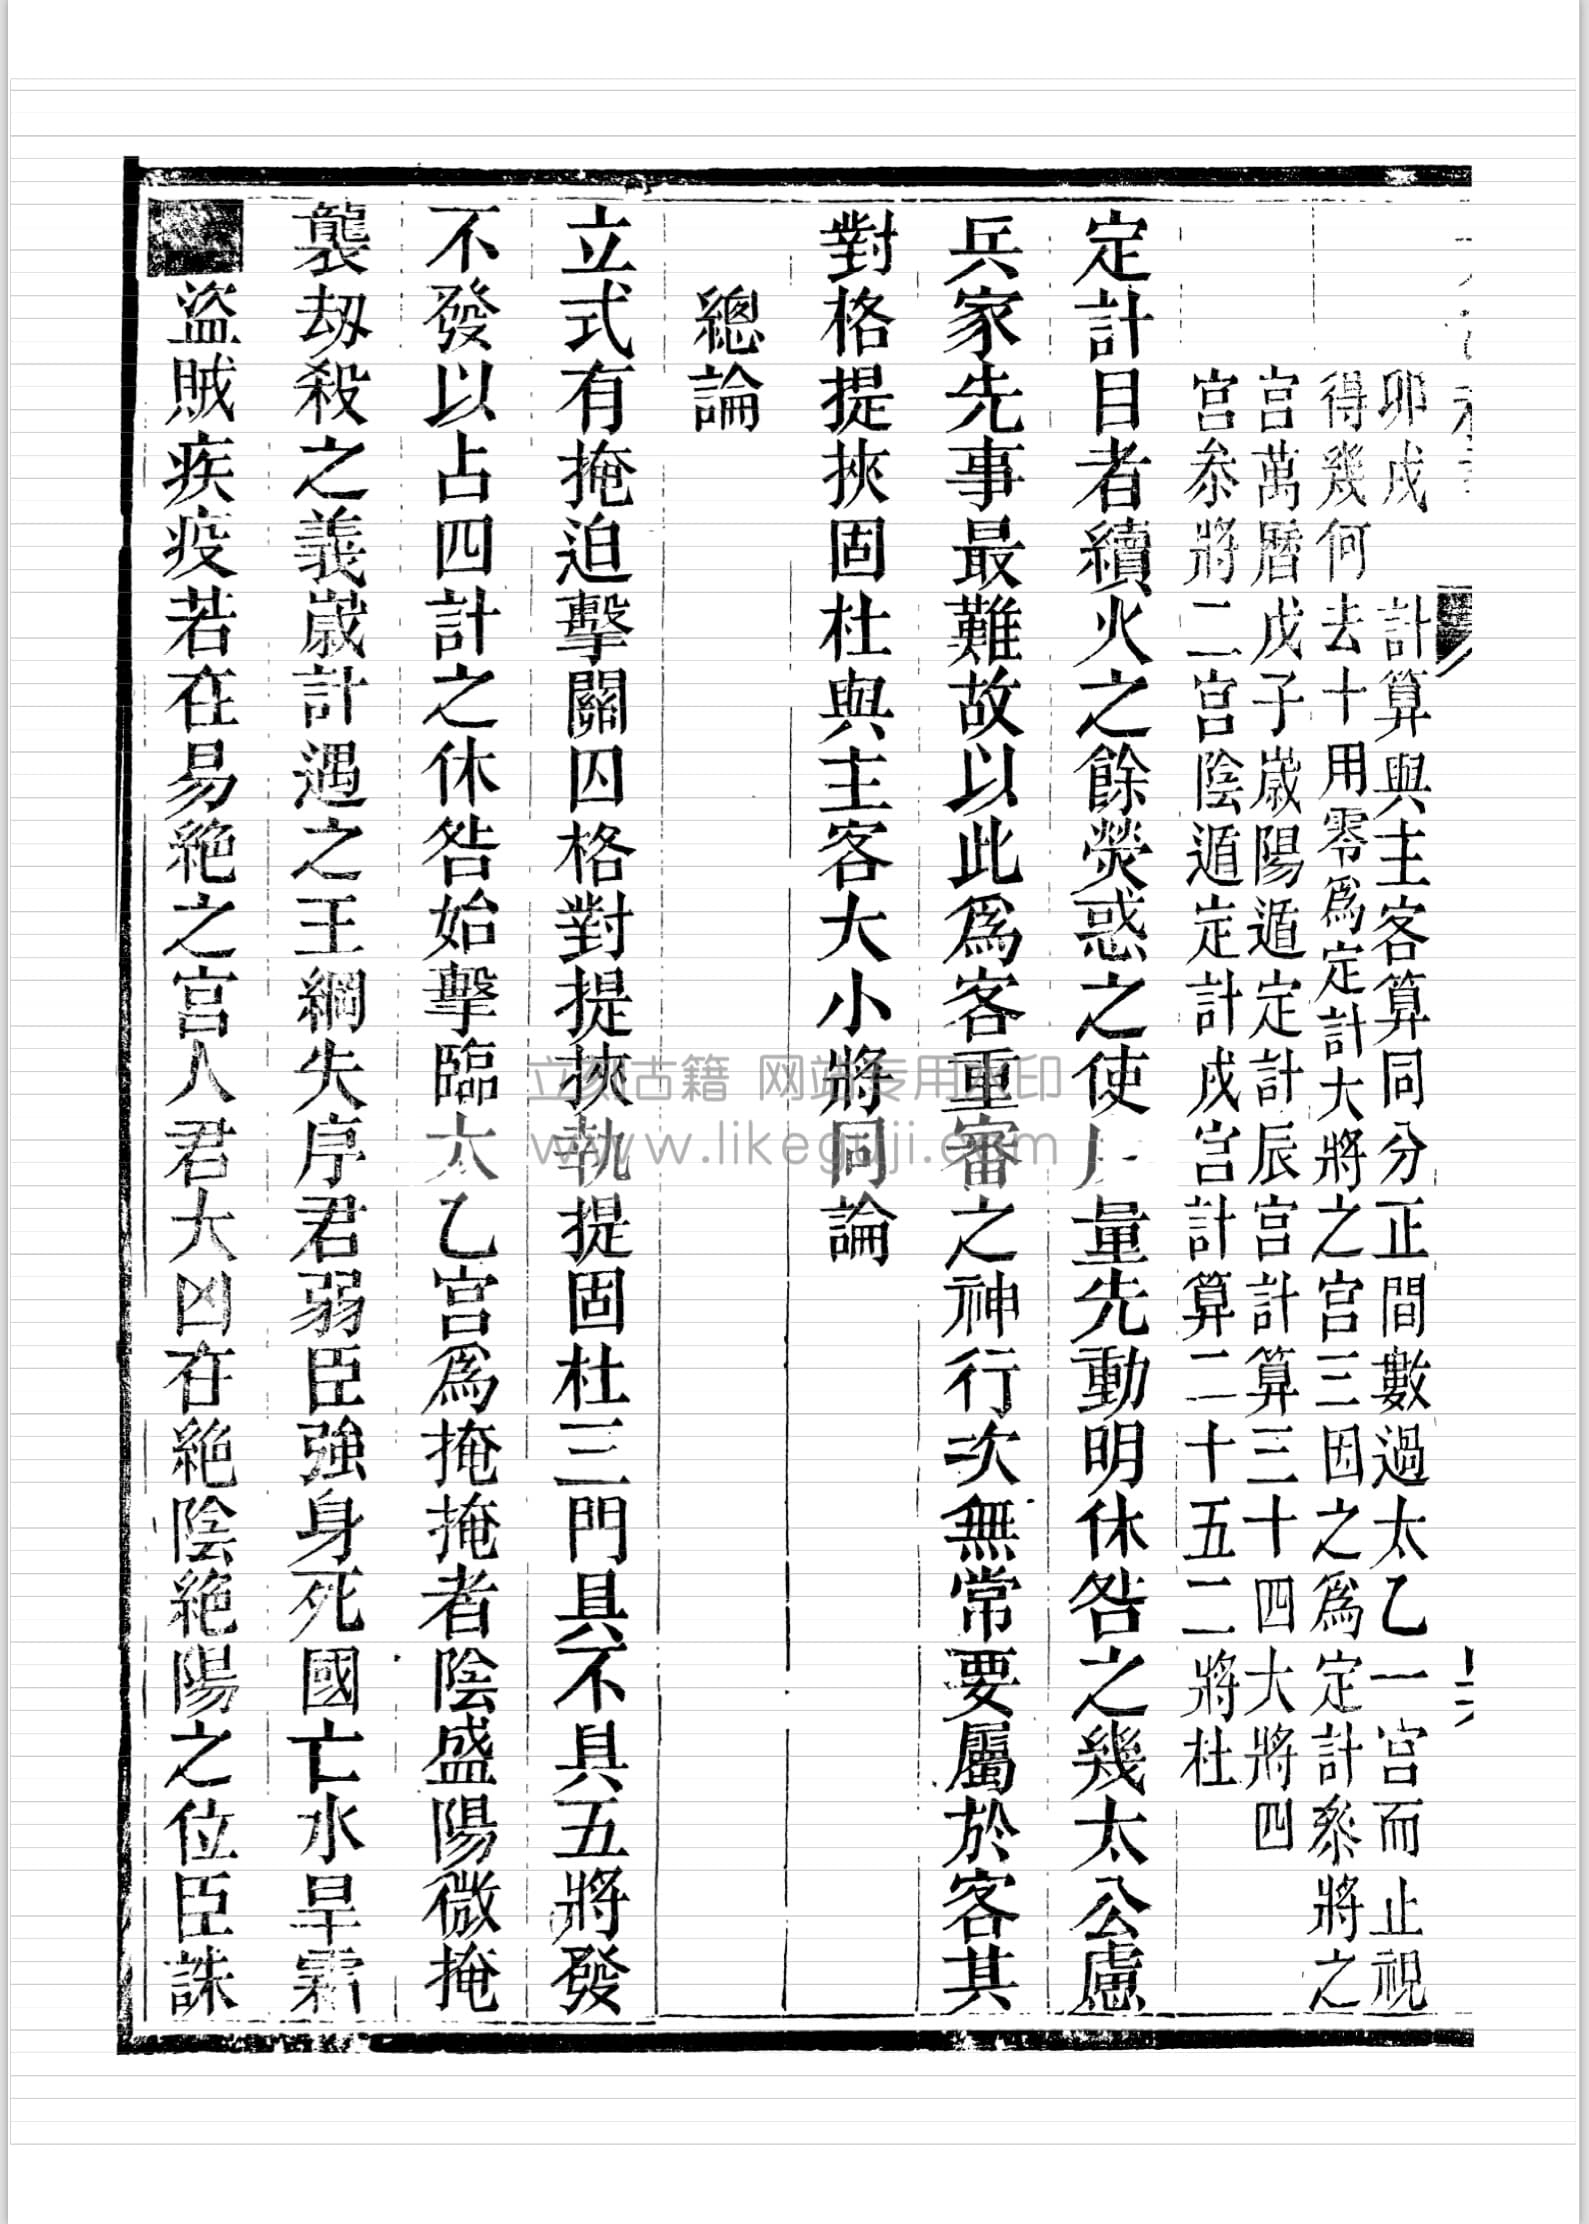 卯戌　計算與主客算同分正間數過太乙一宮而止視
得幾何　去十用零爲定計大將之宮三因之爲定計叅將之
宮萬曆戊子嵗陽遁定計辰宮計算三十四大將四
宮叅將二宮陰遁定計戌宮計算二十五二將杜
定計目者續火之餘熒惑之使量先動明休咎之幾太公慮
兵家先事最難故以此爲客重審之神行次無常要屬於客其
對格提挾固杜與主客大小將同論
總論
立式有掩迫擊關囚格對提挾執提固杜三門具不具五將發
不發以占四計之休咎始擊臨太乙宮爲掩掩者陰盛陽微掩
襲刼殺之義嵗計遇之王綱失序君弱臣強身死國亡水旱霜
盜賊疾疫若在易絶之宮人君大凶在絶陰絶陽之位臣誅
十二
立刻古籍 网站专用水印
www.likeguji.com